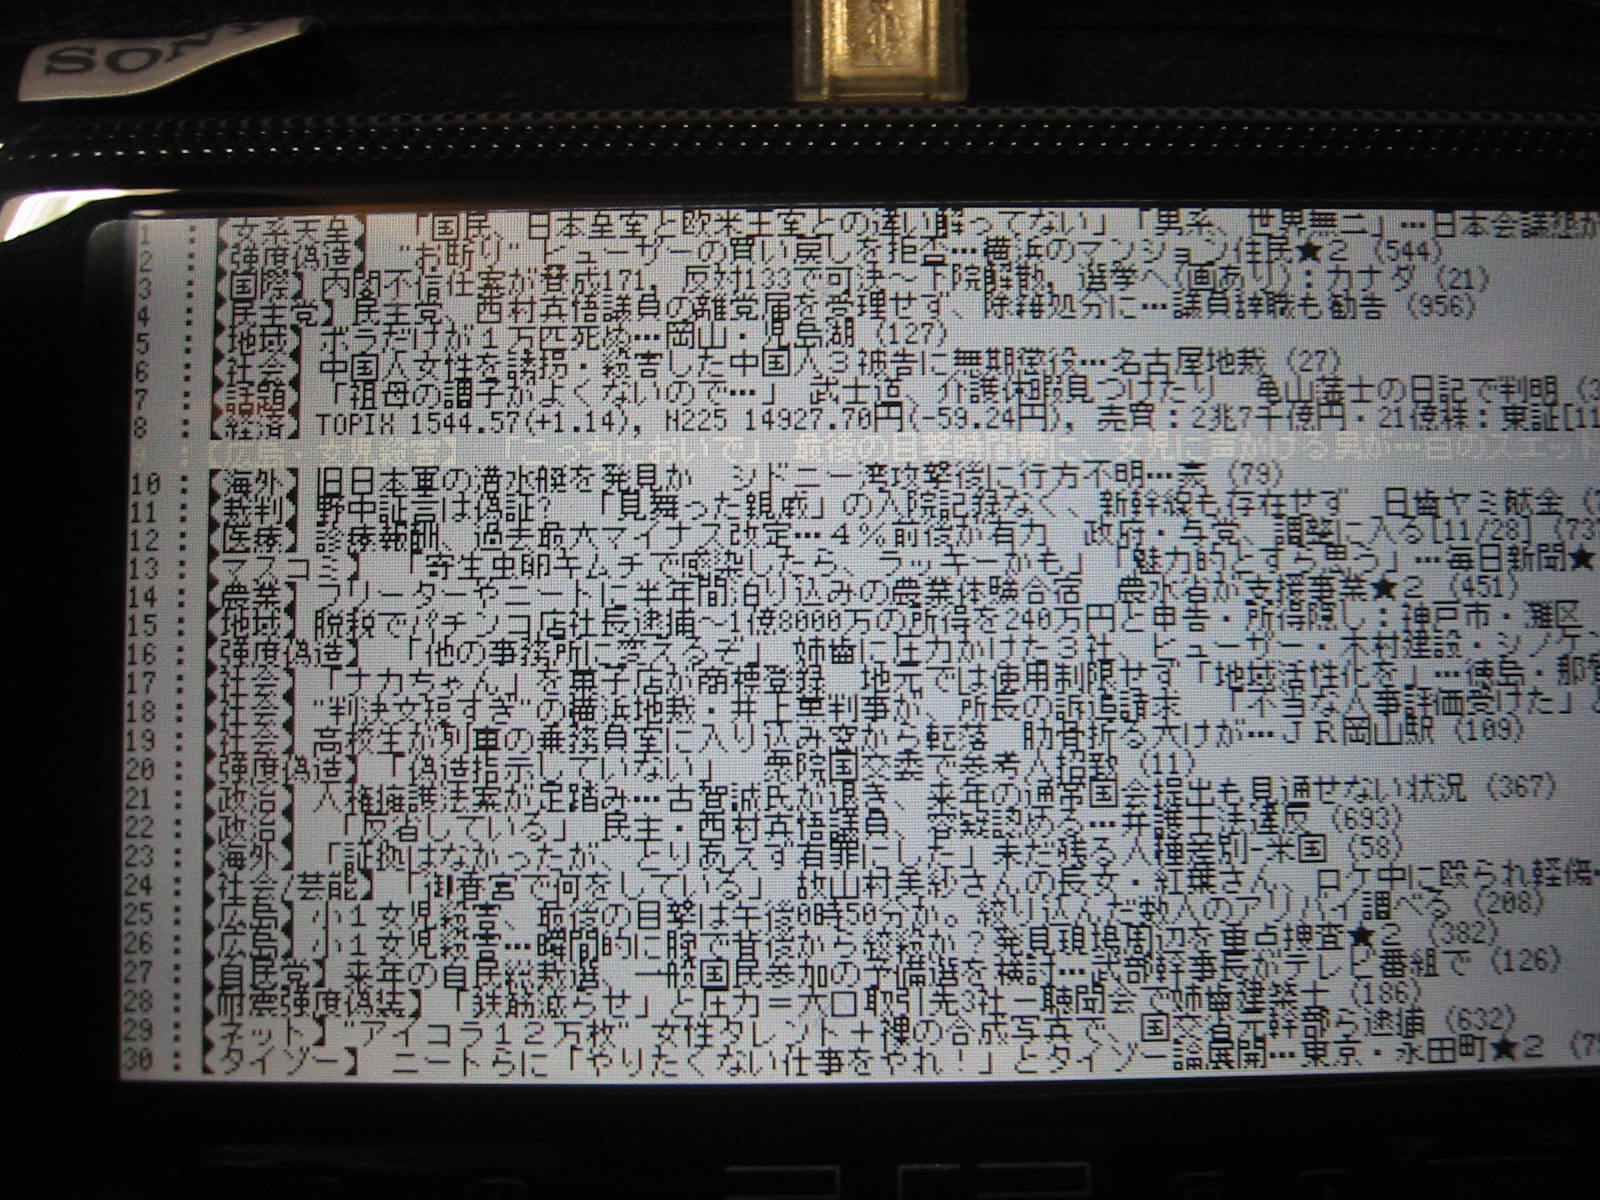 SONY
1 : 【女系天皇】 「国民、日本皇室と欧米王室との違い解ってない」「男系、世界無二」…日本会議想か
2 : 【強度偽造】 “お断り” ヒューザーの買い戻しを拒否…横浜のマンション住民★2 (544)
3 : 【国際】内閣不信任案が賛成171, 反対133で可決～下院解散, 選挙へ(画あり):カナダ (21)
4 : 【民主党】民主党、西村真悟議員の離党届を受理せず、除籍処分に…議員辞職も勧告 (956)
5 : 【地域】 ボラだけが１万匹死ぬ…岡山・児島湖 (127)
6 : 【社会】 中国人女性を誘拐・殺害した中国人３被告に無期懲役…名古屋地裁 (27)
7 : 【話題】 「祖母の調子がよくないので…」 武士道、介護休暇見つけたり 亀山藩士の日記で判明 (3
8 : 【経済】 TOPIX 1544.57(+1.14), N225 14927.70円(-59.24円), 売買:2兆7千億円・21億株:東証[11
9 : 【広島・女児殺害】 「こっちにおいで」 最後の目撃時間帯に、女児に声かける男が…白のスエット
10 : 【海外】 旧日本軍の潜水艇を発見か シドニー湾攻撃後に行方不明…豪 (79)
11 : 【裁判】 野中証言は偽証? 「見舞った親戚」の入院記録なく、新幹線も存在せず 日歯ヤミ献金 (7
12 : 【医療】 診療報酬、過去最大マイナス改定…４％前後が有力 政府・与党、調整に入る[11/28] (737
13 : 【マスコミ】 「寄生虫卵キムチで感染したら、ラッキーかも」「魅力的とすら思う」…毎日新聞★
14 : 【農業】 フリーターやニートに半年間泊り込みの農業体験合宿 農水省が支援事業★2 (451)
15 : 【地域】 脱税でパチンコ店社長逮捕～1億8000万の所得を240万円と申告・所得隠し:神戸市・灘区
16 : 【強度偽造】 「他の事務所に変えるぞ」 姉歯に圧力かけた３社、ヒューザー・木村建設・シノケン
17 : 【社会】 「ナカちゃん」を菓子店が商標登録 地元では使用制限せず「地域活性化を」…徳島・那賀
18 : 【社会】 “判決文短すぎ”の横浜地裁・井上薫判事が、所長の訴追請求 「不当な人事評価受けた」と
19 : 【社会】 高校生が列車の乗務員室に入り込み窓から転落 肋骨折る大けが…ＪＲ岡山駅 (109)
20 : 【強度偽造】 「偽造指示していない」 衆院国交委で参考人招致 (11)
21 : 【政治】 人権擁護法案が足踏み…古賀誠氏が退き、来年の通常国会提出も見通せない状況 (367)
22 : 【政治】 「反省している」 民主・西村真悟議員、容疑認める…弁護士法違反 (693)
23 : 【海外】 「証拠はなかったが、とりあえず有罪にした」未だ残る人種差別-米国 (58)
24 : 【社会/芸能】 「御香宮で何をしている」 故山村美紗さんの長女・紅葉さん、ロケ中に殴られ軽傷…
25 : 【広島】 小１女児殺害、最後の目撃は午後0時50分か。絞り込んだ数人のアリバイ調べる (208)
26 : 【広島】 小１女児殺害…瞬間的に腕で背後から絞殺か？発見現場周辺を重点捜査★2 (382)
27 : 【自民党】来年の自民総裁選、一般国民参加の予備選を検討…武部幹事長がテレビ番組で (126)
28 : 【耐震強度偽装】 「鉄筋減らせ」と圧力＝大口取引先3社－聴聞会で姉歯建築士 (186)
29 : 【ネット】“アイコラ１２万枚” 女性タレント＋裸の合成写真で、国交省元幹部ら逮捕 (632)
30 : 【タイゾー】 ニートらに「やりたくない仕事をやれ！」とタイゾー論展開…東京・永田町★2 (79